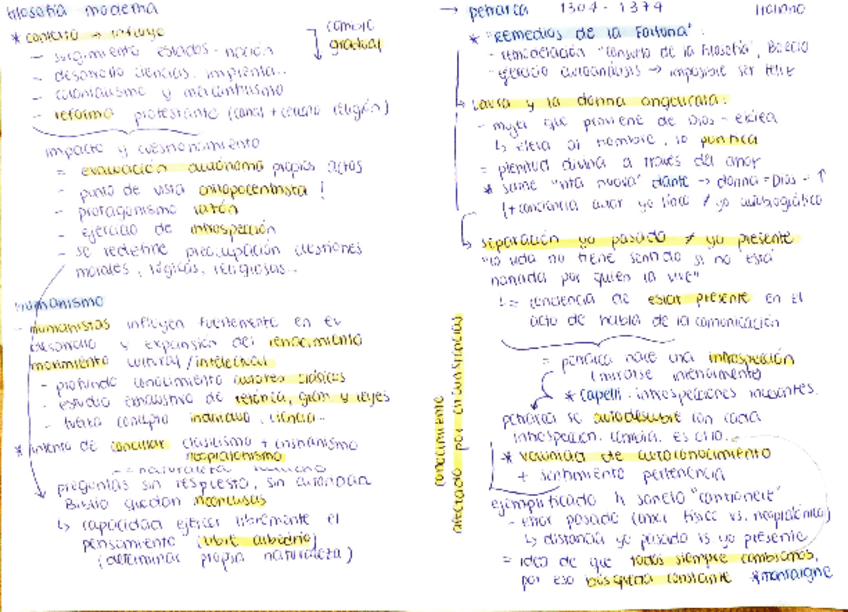 filosofía moderna
* contexto → influye
cambio
gradual
- surgimiento estados-nación
- desarrollo ciencias, imprenta..
- colonialismo y mercantilismo
- reforma protestante (
religión)
impacto y cuestionamiento
= evaluación autónoma propios actos
- punto de vista antropocentrista!
- protagonismo razón
- ejercicio de introspección
- se redefine preocupación cuestiones
morales, lógicas, religiosas..
Humanismo
- humanistas influyen fuertemente en el
desarrollo y expansión del renacimiento
movimiento cultural/intelectual
- profundo conocimiento autores clásicos
- estudio exhaustivo de retórica, gram y leyes
- nuevo concepto individuo, ciencia..
* intento de conciliar clasicismo + cristianismo
neoplatonismo
naturaleza humano
preguntas sin respuesta, sin autoridad
Biblio quedan inconclusas
↳ capacidad ejercer libremente el
pensamiento (libre albedrío)
(determinar propia naturaleza)
→ petrarca 1304 - 1374
* "REMEDIOS de la Fortuna":
- remodelación "consuelo de la filosofía", Boecio
- ejercicio autoanálisis → imposible ser feliz
Laura y la donna angelicata:
- mujer que proviene de Dios - etérea
↳ eleva al hombre, lo purifica
= plenitud divina a través del amor
* sigue "vita nuova" dante → donna = Dios - ↑
(+ conciencia autor yo lírico ≠ yo autobiográfico
separación yo pasado ≠ yo presente
"la vida no tiene sentido si no está
narrada por quien la vive"
↳ = conciencia de estar presente en el
acto de habla de la comunicación
= petrarca hace una introspección
(mirarse internamente)
* capelli - introspecciones incesantes.
petrarca se autodescubre con cada
introspección, cambia, es otro..
* voluntad de autoconocimiento
+ sentimiento pertenencia
ejemplificado
soneto "canzoniere"
- error pasado (amor físico vs. neoplatónico)
↳ distancia yo pasado vs yo presente
= idea de que todos siempre cambiamos,
por eso búsqueda constante *montaigne
conocimiento
afectado por circunstancias